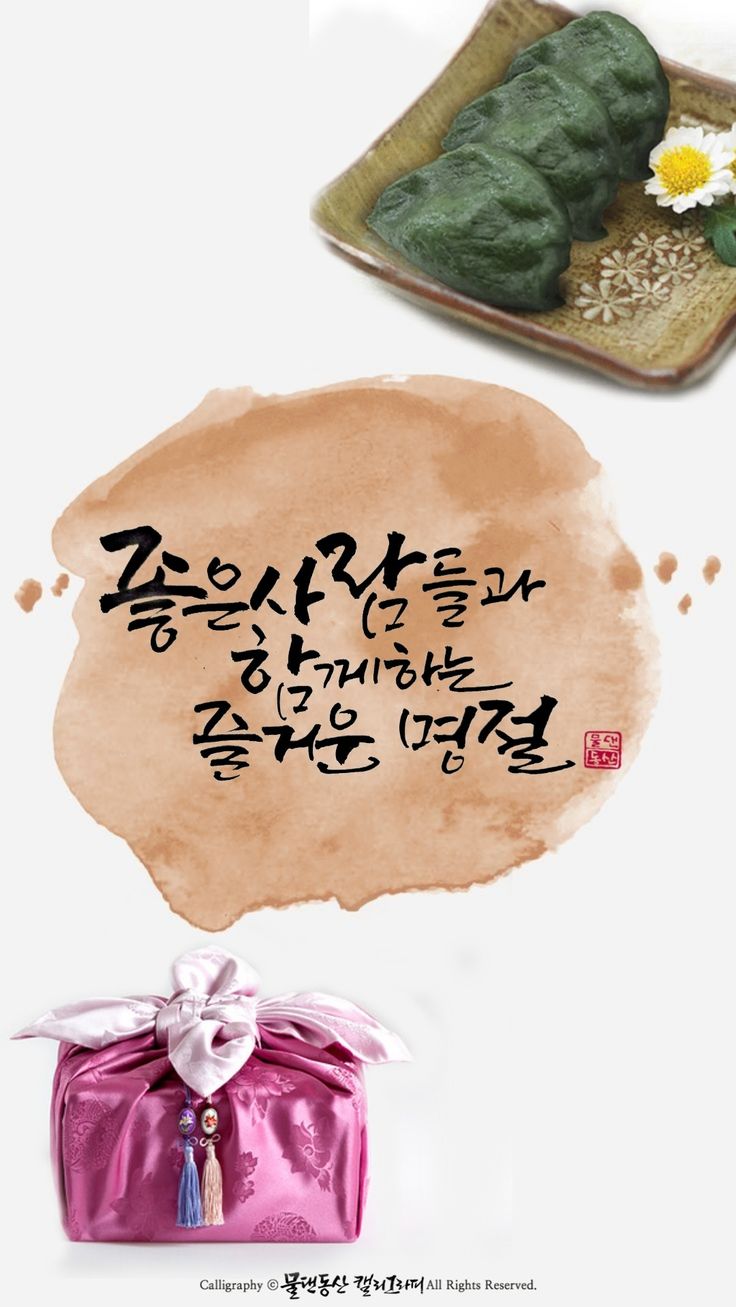 좋은 사람들과
함께하는
즐거운 명절
물댄
동산
Calligraphy © 물댄동산 캘리그라피 All Rights Reserved.